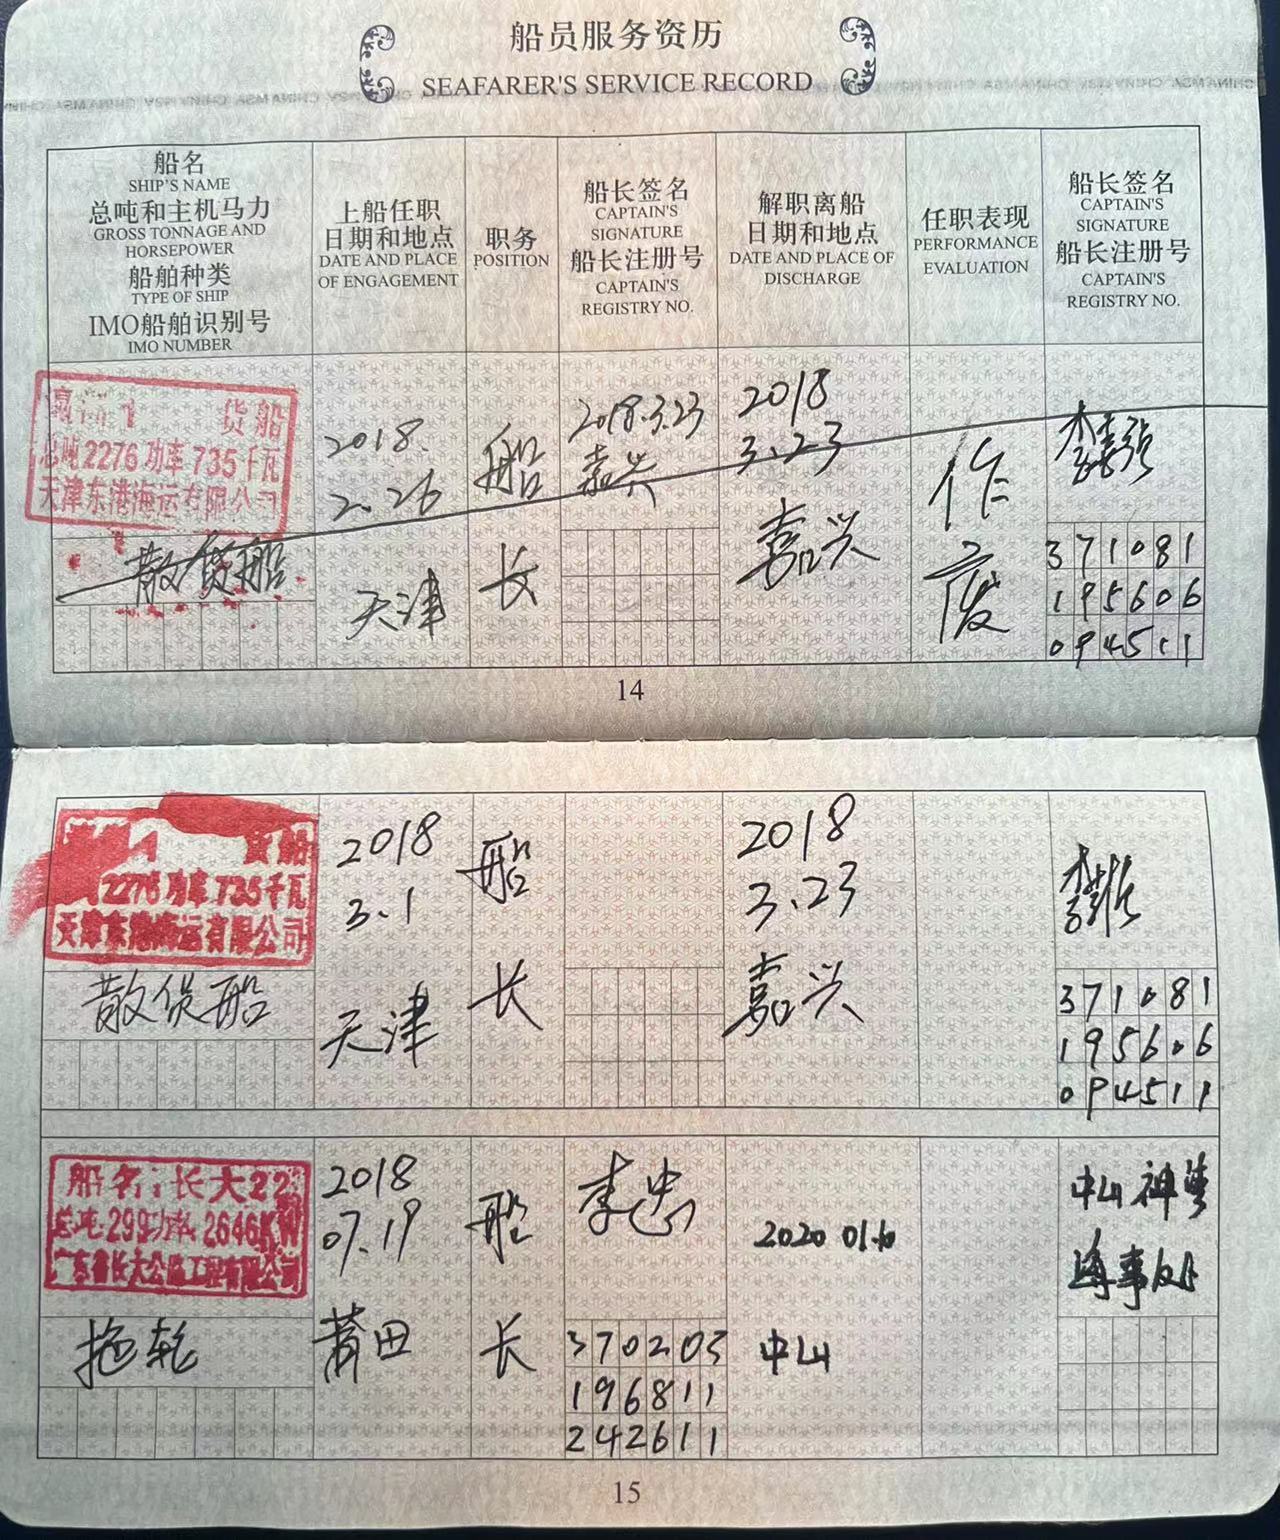 船员服务资历
SEAFARER'S SERVICE RECORD
船名
SHIP'S NAME
总吨和主机马力
GROSS TONNAGE AND
HORSEPOWER
船舶种类
TYPE OF SHIP
IMO船舶识别号
IMO NUMBER
上船任职
日期和地点
DATE AND PLACE
OF ENGAGEMENT
职务
POSITION
船长签名
CAPTAIN'S
SIGNATURE
船长注册号
CAPTAIN'S
REGISTRY NO.
解职离船
日期和地点
DATE AND PLACE OF
DISCHARGE
任职表现
PERFORMANCE
EVALUATION
船长签名
CAPTAIN'S
SIGNATURE
船长注册号
CAPTAIN'S
REGISTRY NO.
1 货船
总吨2276功率735千瓦
天津东港海运有限公司
散货船
2018.
2.26
天津
船
长
2018.3.23
嘉兴
2018
3.23
嘉兴
作
废
371081
195606
094511
14
1 货船
2276功率735千瓦
天津东港海运有限公司
散货船
2018
3.1
天津
船
长
2018
3.23
嘉兴
371081
195606
094511
船名:长大22
总吨:299功率:2646KW
广东省长大公路工程有限公司
拖轮
2018
07.19
莆田
船
长
李忠
370203
196811
242611
2020 01.10
中山
中山神湾
海事处
15